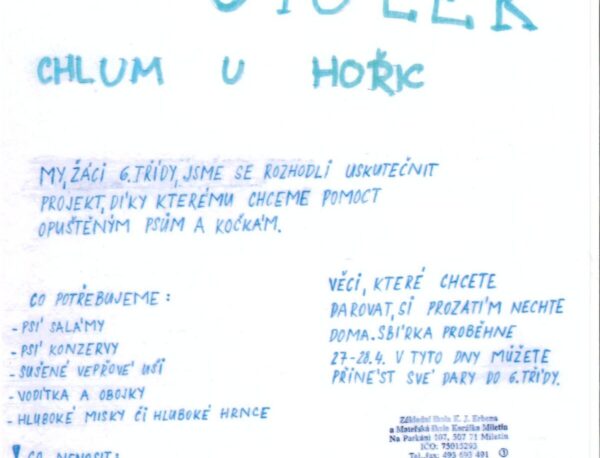 CHLUM U HOŘIC
MY, ŽÁCI 6. TŘÍDY, JSME SE ROZHODLI USKUTEČNIT
PROJEKT, DÍKY KTERÉMU CHCEME POMOCT
OPUŠTĚNÝM PSŮM A KOČKÁM.
CO POTŘEBUJEME:
- PSÍ SALÁMY
- PSÍ KONZERVY
- SUŠENÉ VEPŘOVÉ UŠI
- VODÍTKA A OBOJKY
- HLUBOKÉ MISKY ČI HLUBOKÉ HRNCE
! CO NENOSIT:
VĚCI, KTERÉ CHCETE
DAROVAT, SI PROZATÍM NECHTE
DOMA. SBÍRKA PROBĚHNE
27-28.4. V TYTO DNY MŮŽETE
PŘINÉST SVÉ DARY DO 6. TŘÍDY.
Základní škola K. J. Erbena
a Mateřská škola Korálka Miletín
Na Parkáni 107, 507 71 Miletín
IČO: 75015293
Tel./fax: 493 693 401